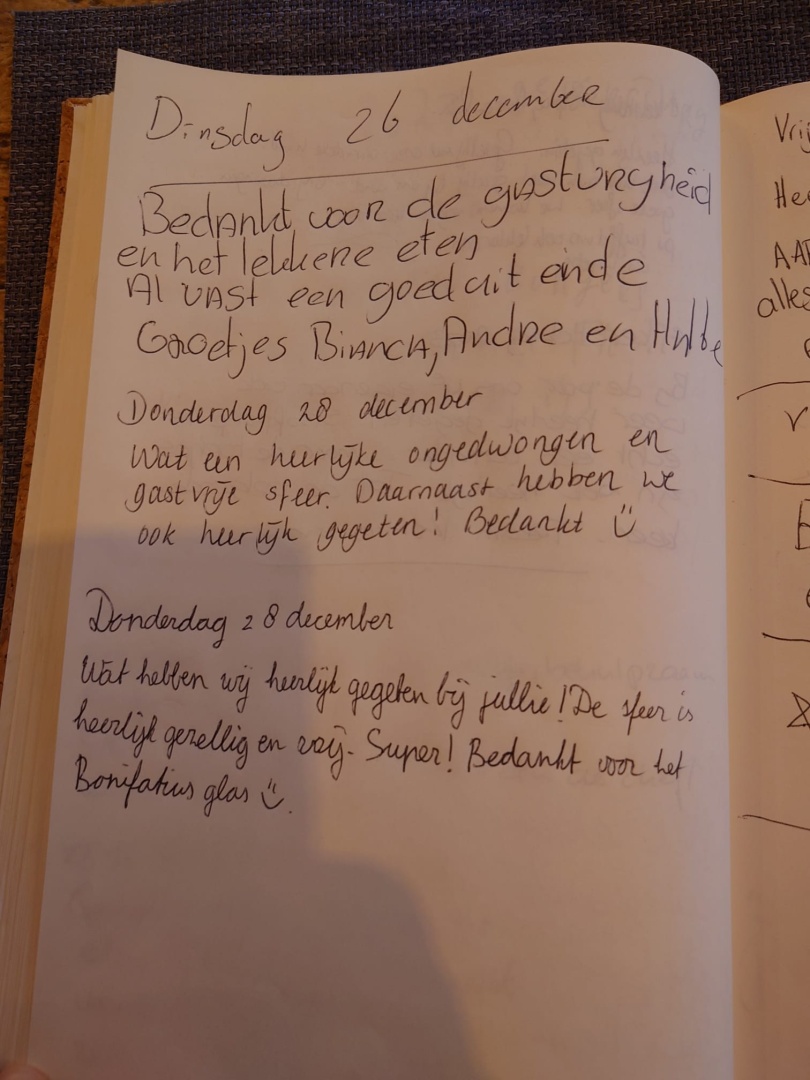 Dinsdag 26 december
Bedankt voor de gastvrijheid
en het lekkere eten
Al vast een goed uit einde
Groetjes Bianca, Andre en
Donderdag 28 december
Wat een heerlijke ongedwongen en
gastvrije sfeer. Daarnaast hebben we
ook heerlijk gegeten! Bedankt
Donderdag 28 december
Wat hebben wij heerlijk gegeten bij jullie! De sfeer is
heerlijk gezellig en vrij. Super! Bedankt voor het
Bonifatius glas
Vrij
Hee
alles